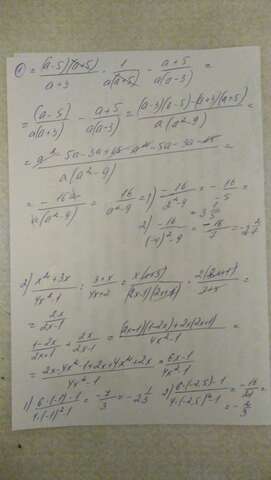 1) = (a-5)(a+5)/(a+3) · 1/(a(a+5)) - (a+5)/(a(a-3)) =
= (a-5)/(a(a+3)) - (a+5)/(a(a-3)) = ((a-3)(a-5)-(a+3)(a+5))/(a(a²-9))
= (a²-5a-3a+15-a²-5a-3a-15)/(a(a²-9)) =
= -16a/(a(a²-9)) = 16/(a²-9) = 1) -16/5
2) -16/((-4)²-9) = -16/7 = -2 2/7
2) (x²+3x)/(4x²-1) : (3+x)/(4x+2) = x(x+3)/((2x-1)(2x+1)) · 2(2x+1)/(3+x) =
= 2x/(2x-1)
(1-2x)/(2x+1) + 2x/(2x-1) = ((2x-1)(1-2x)+2x(2x+1))/(4x²-1) =
= (2x-4x²-1+2x+4x²+2x)/(4x²-1) = (6x-1)/(4x²-1)
1) (6·(-1)-1)/(4·(-1)²-1) = -7/3 = -2 1/3